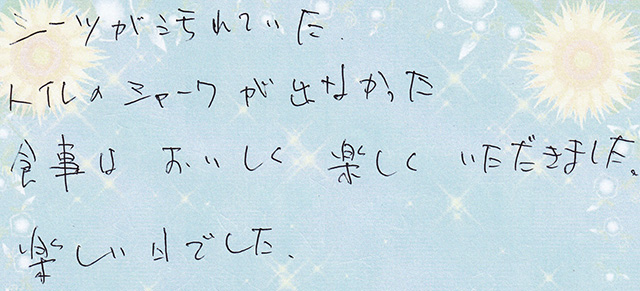 シーツが汚れていた.
トイレのシャワーが出なかった
食事は おいしく 楽しく いただきました。
楽しい日でした.